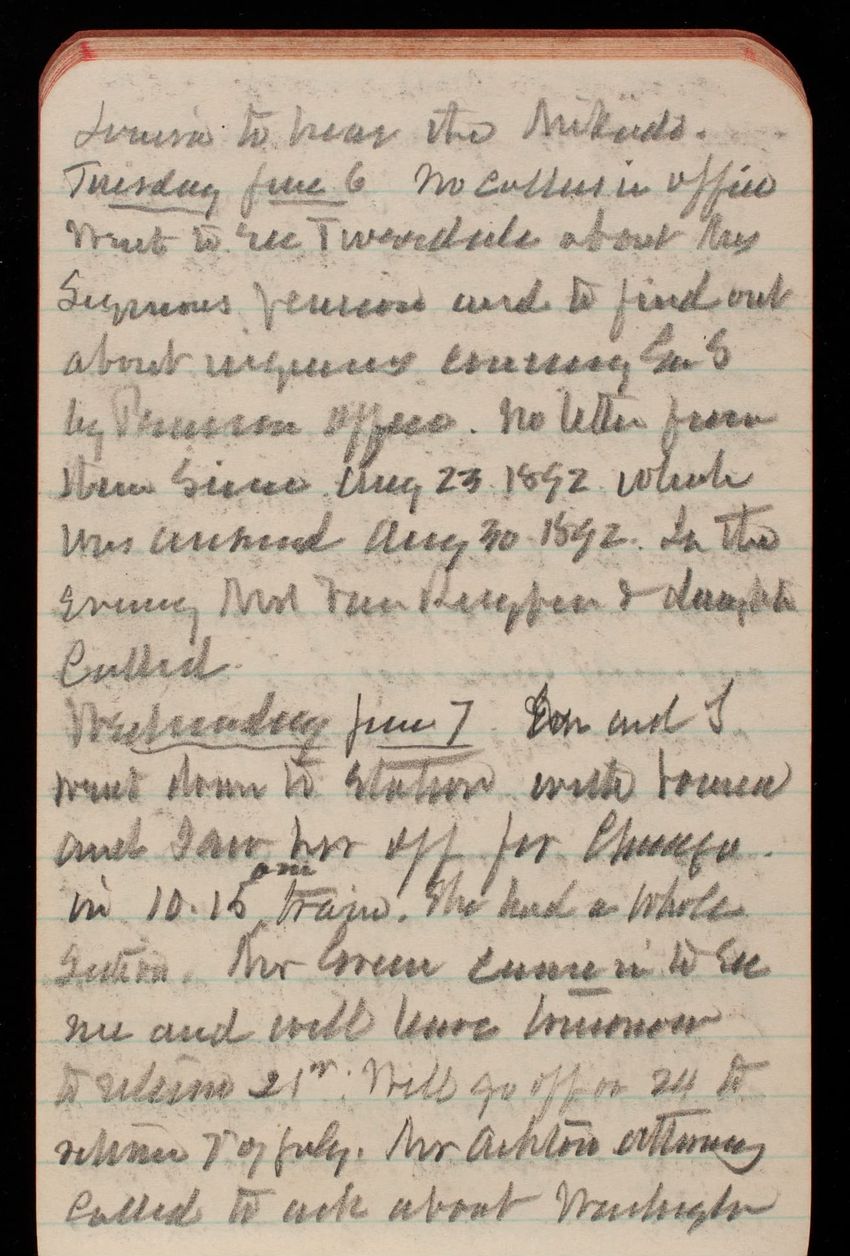 Louisa to hear the Mikado.
Tuesday June 6 No callers in office
Went to see Tweedale about Mrs
Seymours pension and to find out
about inquiries
by Pension Office. No letter from
them since Aug 23 1892 which
was answered Aug 30 1892. In the
evening Mrs Van & daughter
Called.
Wednesday June 7 and I
went down to Station with Louisa
and saw her off for Chicago.
in 10.15 am train. She had a whole
Section. Mr Green came in to see
me and will leave tomorrow
to return 21st. Will go off on 24 to
return 7 of July. Mr Ashton attorney
Called to ask about Washington